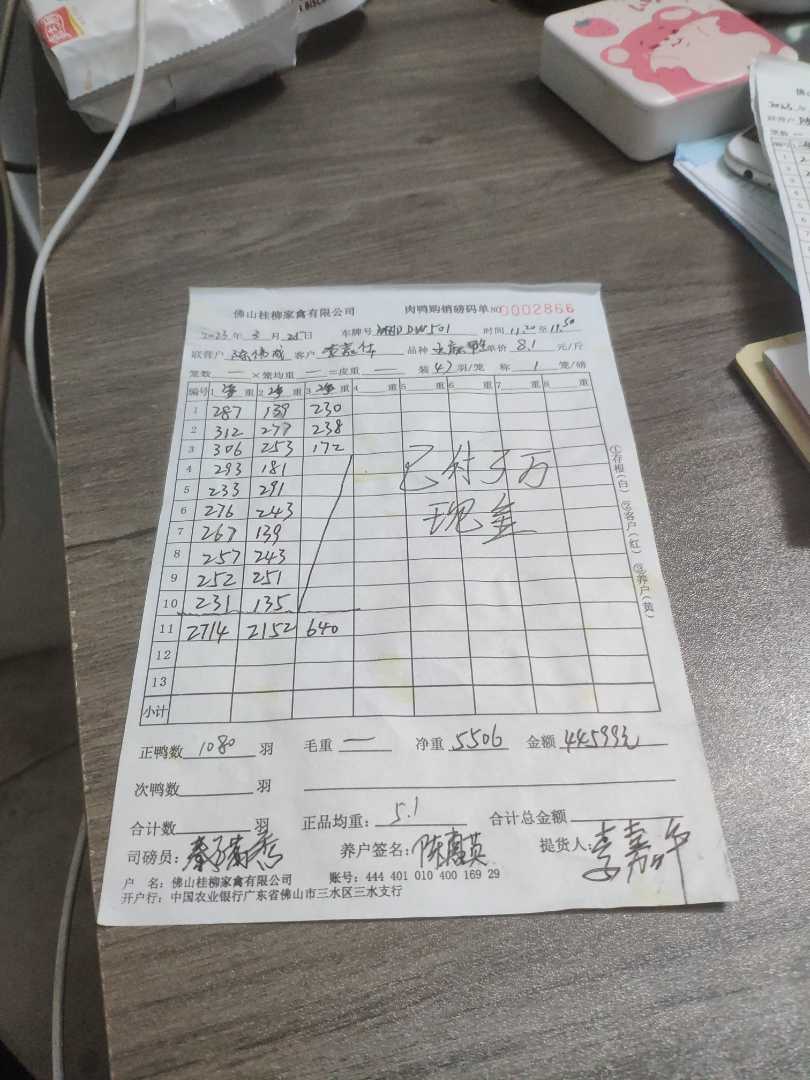 佛山桂柳家禽有限公司 肉鸭购销磅码单 NO 0002866
2023年3月25日 车牌号 时间 11.20 至 11.50
联营户 陈伟成 客户 品种 单价 8.1 元/斤
笼数 一 ×笼均重 一 =皮重 一 装 47 羽/笼 称 1 笼/磅
编号 1 净 重 2 净 重 3 净 重 4 重 5 重 6 重 7 重 8 重
1 287 139 230
2 312 277 238
3 306 253 172
4 293 181
5 233 291
6 276 243
7 267 139
8 257 243
9 252 251
10 231 135
11 2714 2152 640
12
13
小计
已付3万
现金
①存根(白) ②客户(红) ③养户(黄)
正鸭数 1080 羽 毛重 一 净重 5506 金额 44599元
次鸭数 羽
合计数 羽 正品均重: 5.1 合计总金额
司磅员: 养户签名: 提货人: 李嘉
户 名: 佛山桂柳家禽有限公司 账号: 444 401 010 400 169 29
开户行: 中国农业银行广东省佛山市三水区三水支行